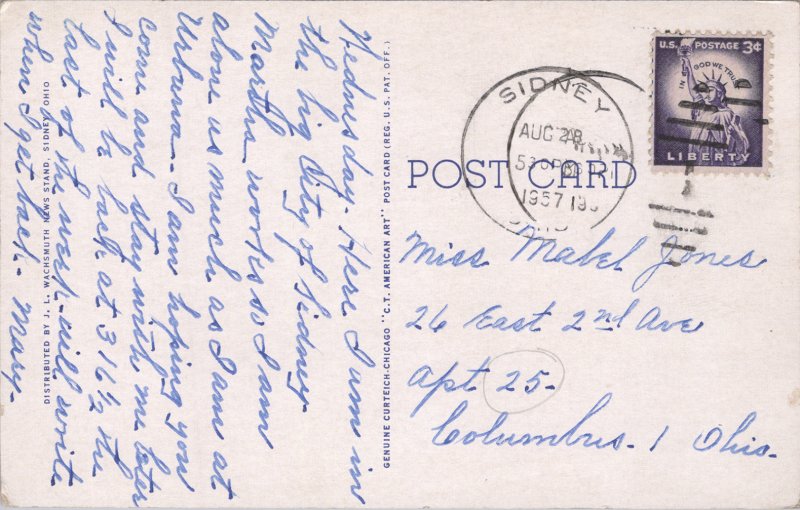 Wednesday - Here I am in
the big City of Sidney -
Martha works so I am
alone as much as I am at
Urbana - I am hoping you
come and stay with me later
I will be back at 316½ the
last of the week - will write
when I get back - Mary -
DISTRIBUTED BY J. L. WACHSMUTH NEWS STAND, SIDNEY, OHIO
GENUINE CURTEICH-CHICAGO "C.T. AMERICAN ART" POST CARD (REG. U.S. PAT. OFF.)
SIDNEY
AUG 28
1957
U.S. POSTAGE 3¢
IN GOD WE TRUST
LIBERTY
POST CARD
Miss Mabel Jones
26 East 2nd Ave
Apt 25 -
Columbus - 1 Ohio -